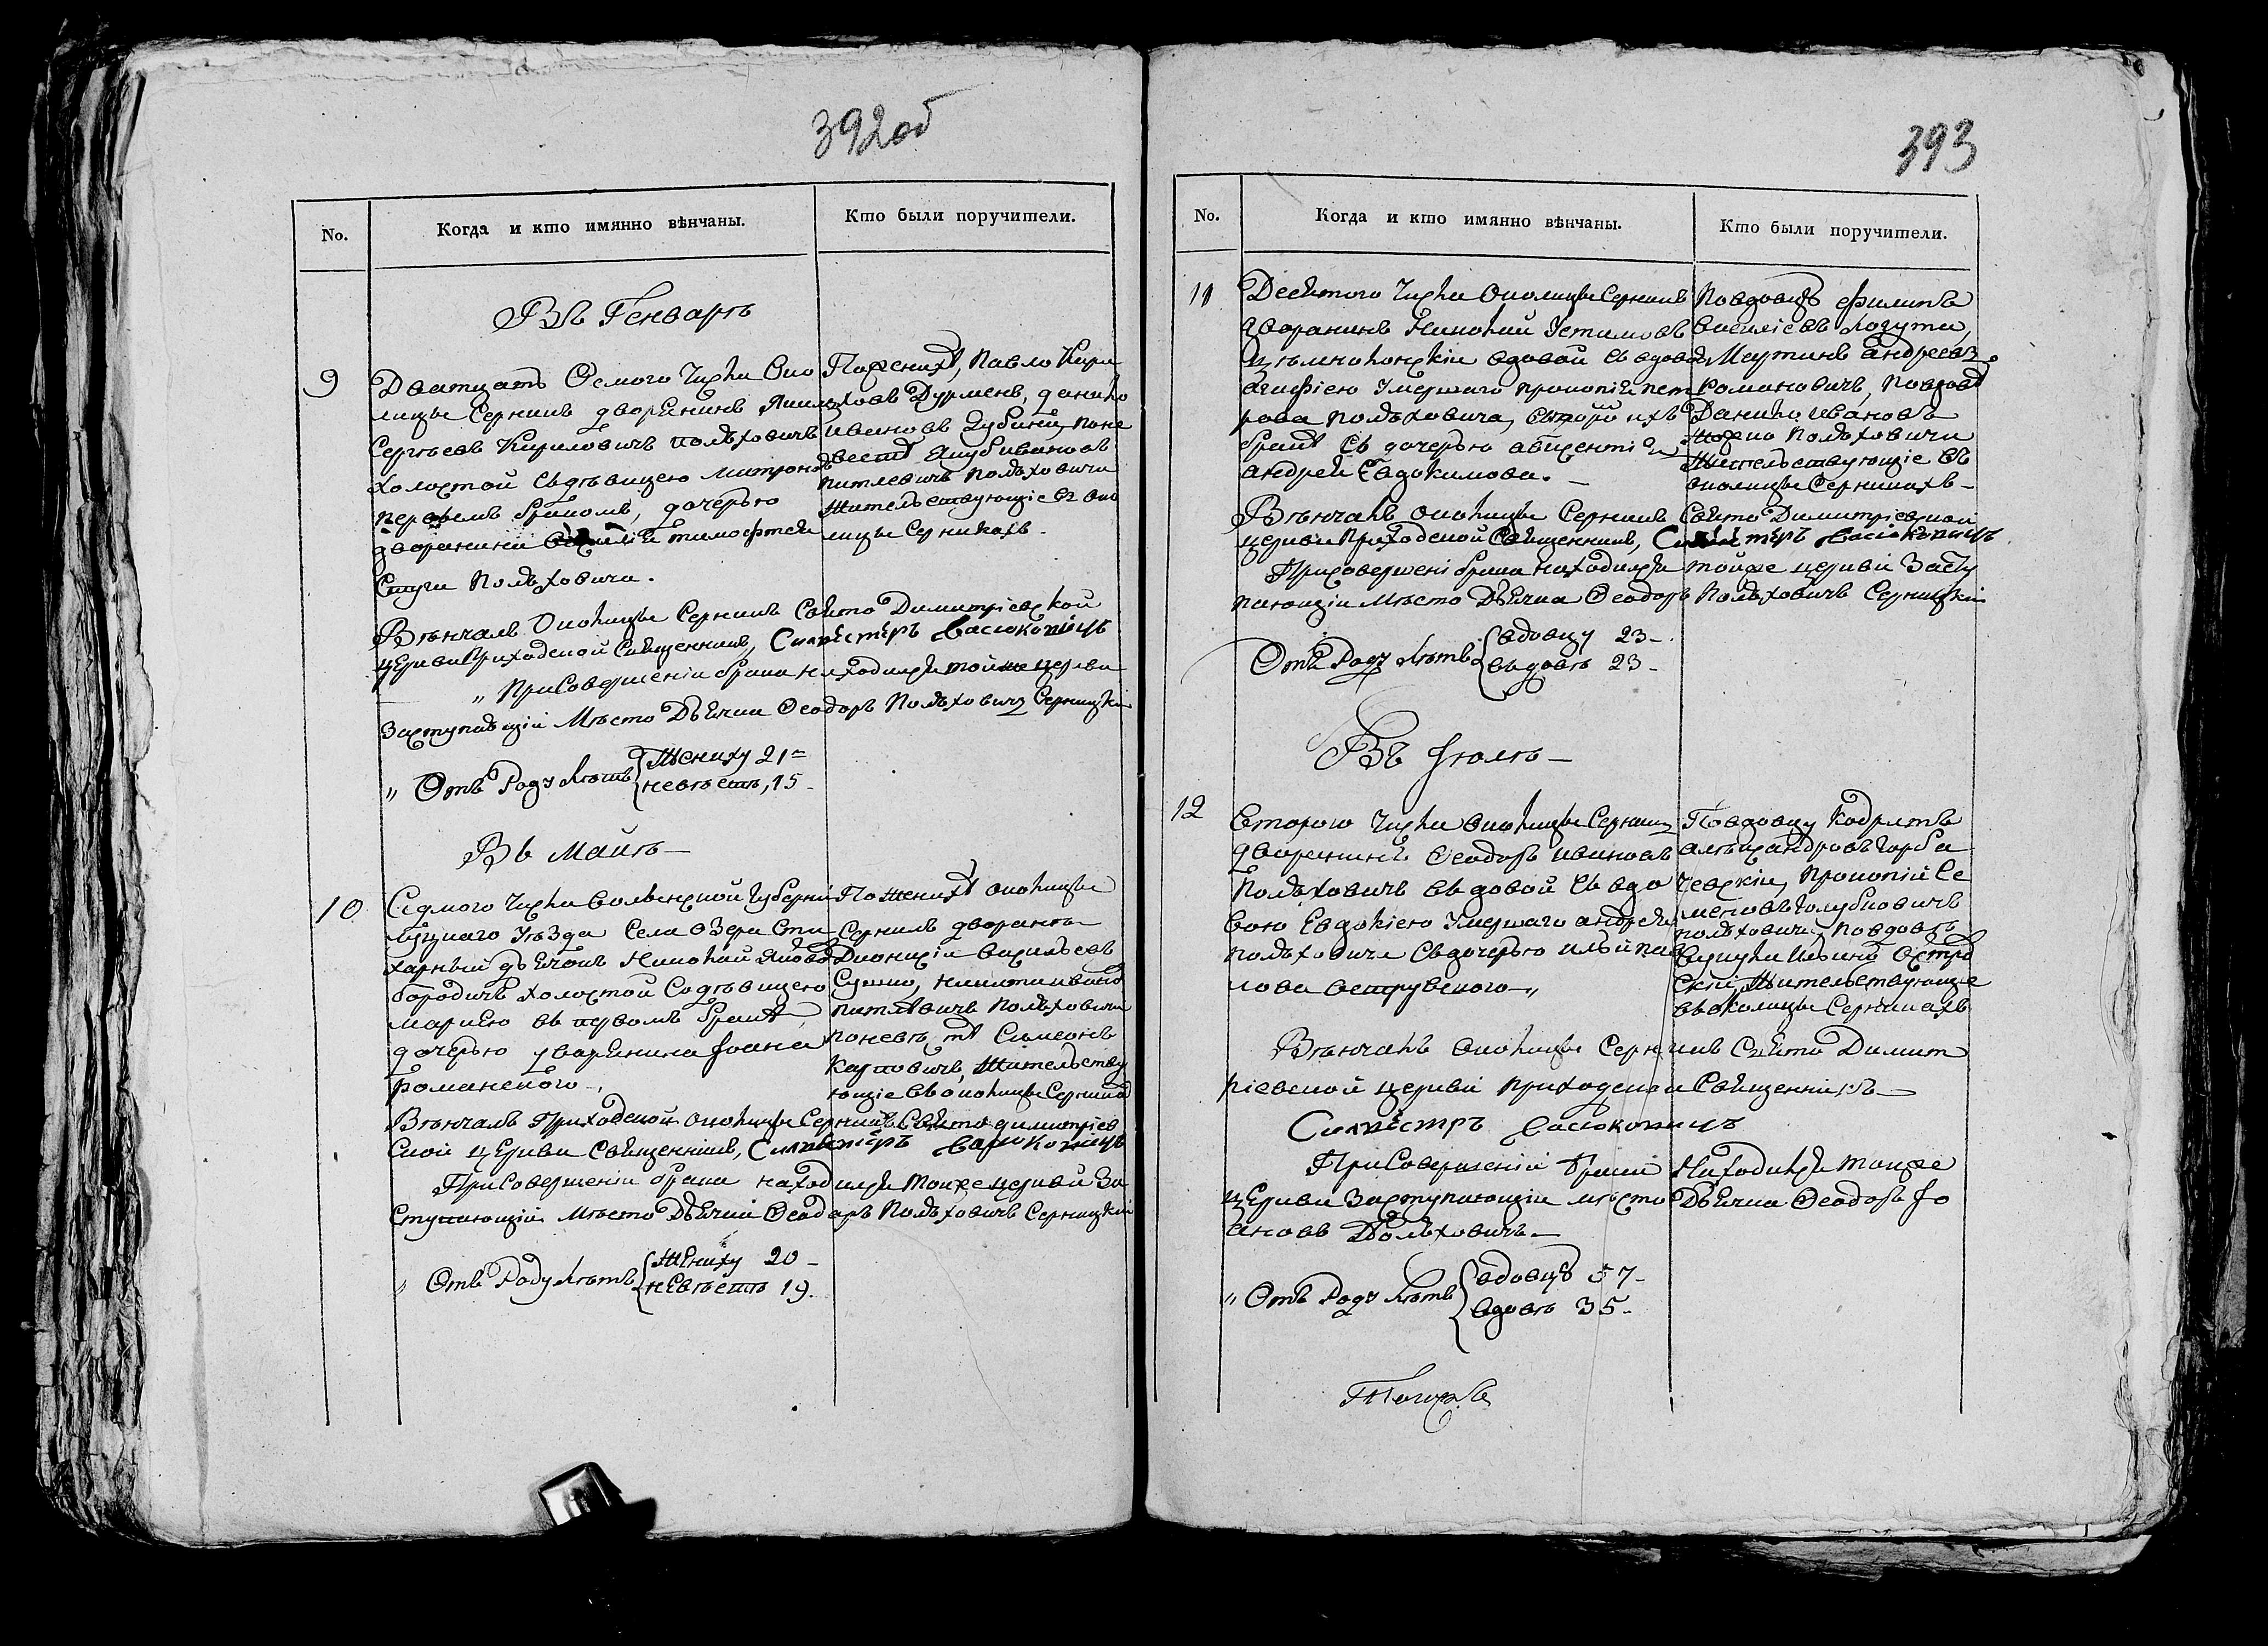 392 об
No.
Когда и кто имянно вѣнчаны.
Кто были поручители.
Въ Генварѣ
9
Дватцать Осмого Числа Око
лицы Серникъ дворянинъ
Сергѣевъ Кириловичъ Полѣховичъ
холостой съ дѣвицею
первымъ бракомъ, дочерью
дворянина Тимофтея
Полѣховича.
По женихѣ, Павло Кири
ловъ Дурменъ, данило
Ивановъ по не
вестѣ Якубъ Ивановъ
Питлевичъ Полѣховичи
Жительствующіе въ око
лицы Серникахъ.
Вѣнчалъ Околицы Серникъ Свято Димитріевской
церкви Приходской Священникъ, Силвестеръ Васюковичъ
„ При Совершеніи брака находился тойже церкви
Заступающій Мѣсто Дьячка Ѳеодоръ Полѣховичъ Серницкій
„ Отъ Роду Лѣтъ
Жениху 21
невѣстѣ, 15
Въ Маиѣ
10
Седмого Числа Волынской Губерніи
Луцкаго Уѣзда Села Озера
дьячокъ Николай Яковъ
Бородичъ холостой Содѣвицею
Маріею въ первомъ бракѣ
дочерью дворянина Іоана
Романского
По Женихѣ околицы
Серникъ дворяне
Діонисій Василѣевъ
Сушко, Никита Иванов
Питлевичъ Полѣховичи
по невѣстѣ Симеонъ
Карповичъ, Жительству
ющіе въ околицы Серникахъ
Вѣнчалъ Приходской околицы Серникъ Свято димитріев
ской церкви Священникъ, Силвестеръ Васюковичъ
При Совершеніи брака находился тоиже церкви За
ступающій Мѣсто Дьячка Ѳеодоръ Полѣховичъ Серницкій
„ Отъ Роду Лѣтъ
Жениху 20
невѣстѣ 19.
393
No.
Когда и кто имянно вѣнчаны.
Кто были поручители.
11
Десятого Числа Околицы Серникъ
дворанинъ Николай Устимовъ
вдовой съ вдовою
Агафіею Умершаго прокопія пет
рова полѣховича, второй ихъ
бракъ съ дочерью
андрея Евдокимова.
По вдовцѣ Филипъ
Василіевъ Логута,
Мартинъ Андреевъ
Романовичъ, По вдовѣ
Данило Ивановъ
Полѣховичи
Жительствующіе въ
околицы Серникахъ
Вѣнчалъ околицы Серникъ Свято Димитріевской
церкви Приходской Священникъ, Силвестеръ Васюковичъ
При совершені брака находился тойже церкви Засту
пающій Мѣсто Дьячка Ѳеодоръ Полѣховичъ Серницкій
Отъ Роду Лѣтъ
вдовцу 23
вдовѣ 23
Въ Іюлѣ
12
Второго Числа околицы Серникъ
дворянинъ Ѳеодоръ Ивановъ
Полѣховичъ вдовой съ вдо
вою Евдокіею Умершаго андрея
полѣховича съ дочерью Ильи пав
лова
По вдовцу Кодратъ
алѣксандровъ Горба
чевскій, Прокопій Се
меновъ Голубовичъ
полѣховичи, по вдовѣ
Ильинъ Остров
скій, Жительствующіе
въ околицы Серникахъ
Вѣнчалъ околицы Серникъ Свято Димит
ріевской церкви приходской Священникъ
Силвестръ Васюковичъ
При Совершеніи брака Находился тоиже
церкви Заступающій мѣсто Дьячка Ѳеодоръ Іо
ановъ Полѣховичъ
„ Отъ Роду Лѣтъ
вдовцу 57
вдовѣ 35